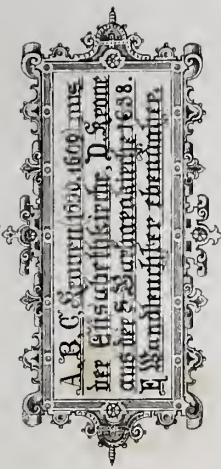 A. B. C. Kannen (v. 1609) aus
der Elisabethkirche, D. Kanne
aus der S. Barbarakirche 1638.
E. Wandleuchter ebendaher.